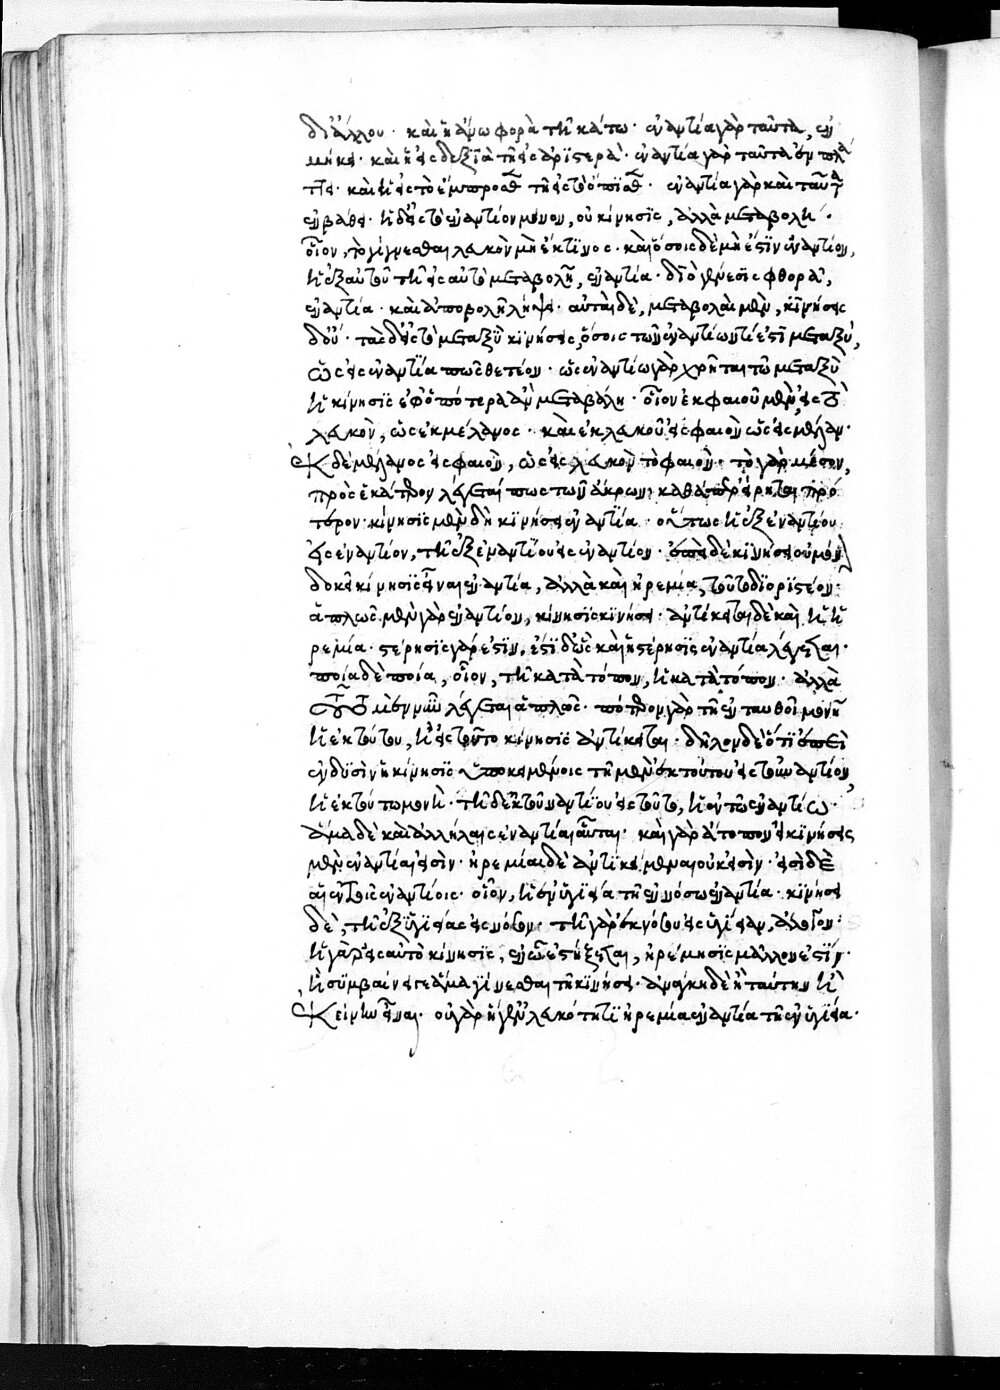 δι' ἄλλου· καὶ ἡ ἄνω φορὰ τῆ κάτω· ἐναντία γὰρ ταῦτα, ἐν
μήκει· καὶ ἡ εἰς δεξιὰ τῆ εἰς ἀριστερά· ἐναντία γὰρ ταῦτα ἐν πλά
τει· καὶ ἡ εἰς τὸ ἔμπροσθεν τῆ εἰς τὸ ὄπισθεν· ἐναντία γὰρ καὶ ταῦτα
ἐν βάθει· ἡ δ' εἰς τὸ ἐναντίον μόνον, οὐ κίνησις, ἀλλὰ μεταβολή·
οἷον, τὸ γίγνεσθαι λευκὸν μὴ ἔκ τινος· καὶ ὅσοις δὲ μὴ ἔστιν ἐναντίον,
ἡ ἐξ αὐτοῦ τῆ εἰς αὐτὸ μεταβολῆ, ἐναντία· διὸ γένεσις φθορᾶ,
ἐναντία· καὶ ἀποβολὴ λήψει· αὗται δὲ, μεταβολαὶ μὲν, κινήσεις
δ' οὔ· τὰς δ' εἰς τὸ μεταξὺ κινήσεις, ὅσοις τῶν ἐναντίων τί ἐστι μεταξύ,
ὡς εἰς ἐναντία πως θετέον· ὡς ἐναντίω γὰρ χρῆται τῶ μεταξὺ
ἡ κίνησις ἐφ' ὁπότερα ἂν μεταβάλη· οἷον ἐκ φαιοῦ μὲν εἰς τὸ
λευκὸν, ὡς ἐκ μέλανος· καὶ ἐκ λευκοῦ εἰς φαιὸν ὡς εἰς μέλαν·
ἐκ δὲ μέλανος εἰς φαιὸν, ὡς εἰς λευκὸν τὸ φαιόν· τὸ γὰρ μέσον,
πρὸς ἑκάτερον λέγεταί πως τῶν ἄκρων, καθάπερ εἴρηται πρό
τερον· κίνησις μὲν δὴ κινήσει ἐναντία οὕτως ἡ ἐξ ἐναντίου
εἰς ἐναντίον, τῆ ἐξ ἐναντίου εἰς ἐναντίον· ἐπεὶ δὲ κινήσει οὐ μόνον
δοκεῖ κίνησις εἶναι ἐναντία, ἀλλὰ καὶ ἠρεμία, τοῦτο διοριστέον·
ἁπλῶς μὲν γὰρ ἐναντίον, κίνησις κινήσει· ἀντίκειται δὲ καὶ ἡ ἠ
ρεμία· στέρησις γάρ ἐστιν, ἔστι δ' ὡς καὶ ἡ στέρησις ἐναντία λέγεται·
ποία δὲ ποία, οἷον, τῆ κατὰ τόπον, ἡ κατὰ τόπον· ἀλλὰ
τοῦτο μὲν νῦν λέγεται ἁπλῶς· πότερον γὰρ τῆ ἐνταυθοῖ μονῆ
ἡ ἐκ τούτου, ἢ ἡ εἰς τοῦτο κίνησις ἀντίκειται· δῆλον δὲ ὅτι ἐπεὶ
ἐν δυσὶν ἡ κίνησις ὑποκειμένοις τῆ μὲν ἐκ τούτου εἰς τὸ ἐναντίον,
ἡ ἐν τούτω μονή· τῆ δ' ἐκ τοῦ ἐναντίου εἰς τοῦτο, ἡ ἐν τῶ ἐναντίω·
ἅμα δὲ καὶ ἀλλήλαις ἐναντίαι αὗται· καὶ γὰρ ἄτοπον εἰ κινήσεις
μὲν ἐναντίαι εἰσὶν· ἠρεμίαι δὲ ἀντικείμεναι οὐκ εἰσὶν· εἰσὶ δὲ
αἱ ἐν τοῖς ἐναντίοις· οἷον, ἡ ἐν ὑγιεία τῆ ἐν νόσω ἐναντία· κινήσει
δὲ, τῆ ἐξ ὑγιείας εἰς νόσον· τῆ γὰρ ἐκ νόσου εἰς ὑγίειαν, ἄλογον·
ἡ γὰρ εἰς αὐτὸ κίνησις, ἐν ὧ ἕστηκεν, ἠρέμησις μᾶλλόν ἐστιν·
ἣ συμβαίνει γε ἅμα γίνεσθαι τῆ κινήσει· ἀνάγκη δὲ ἢ ταύτην ἢ
ἐκείνην εἶναι· οὐ γὰρ ἥ γε ἐν λευκότητι ἠρεμία ἐναντία τῆ ἐν ὑγιεία·